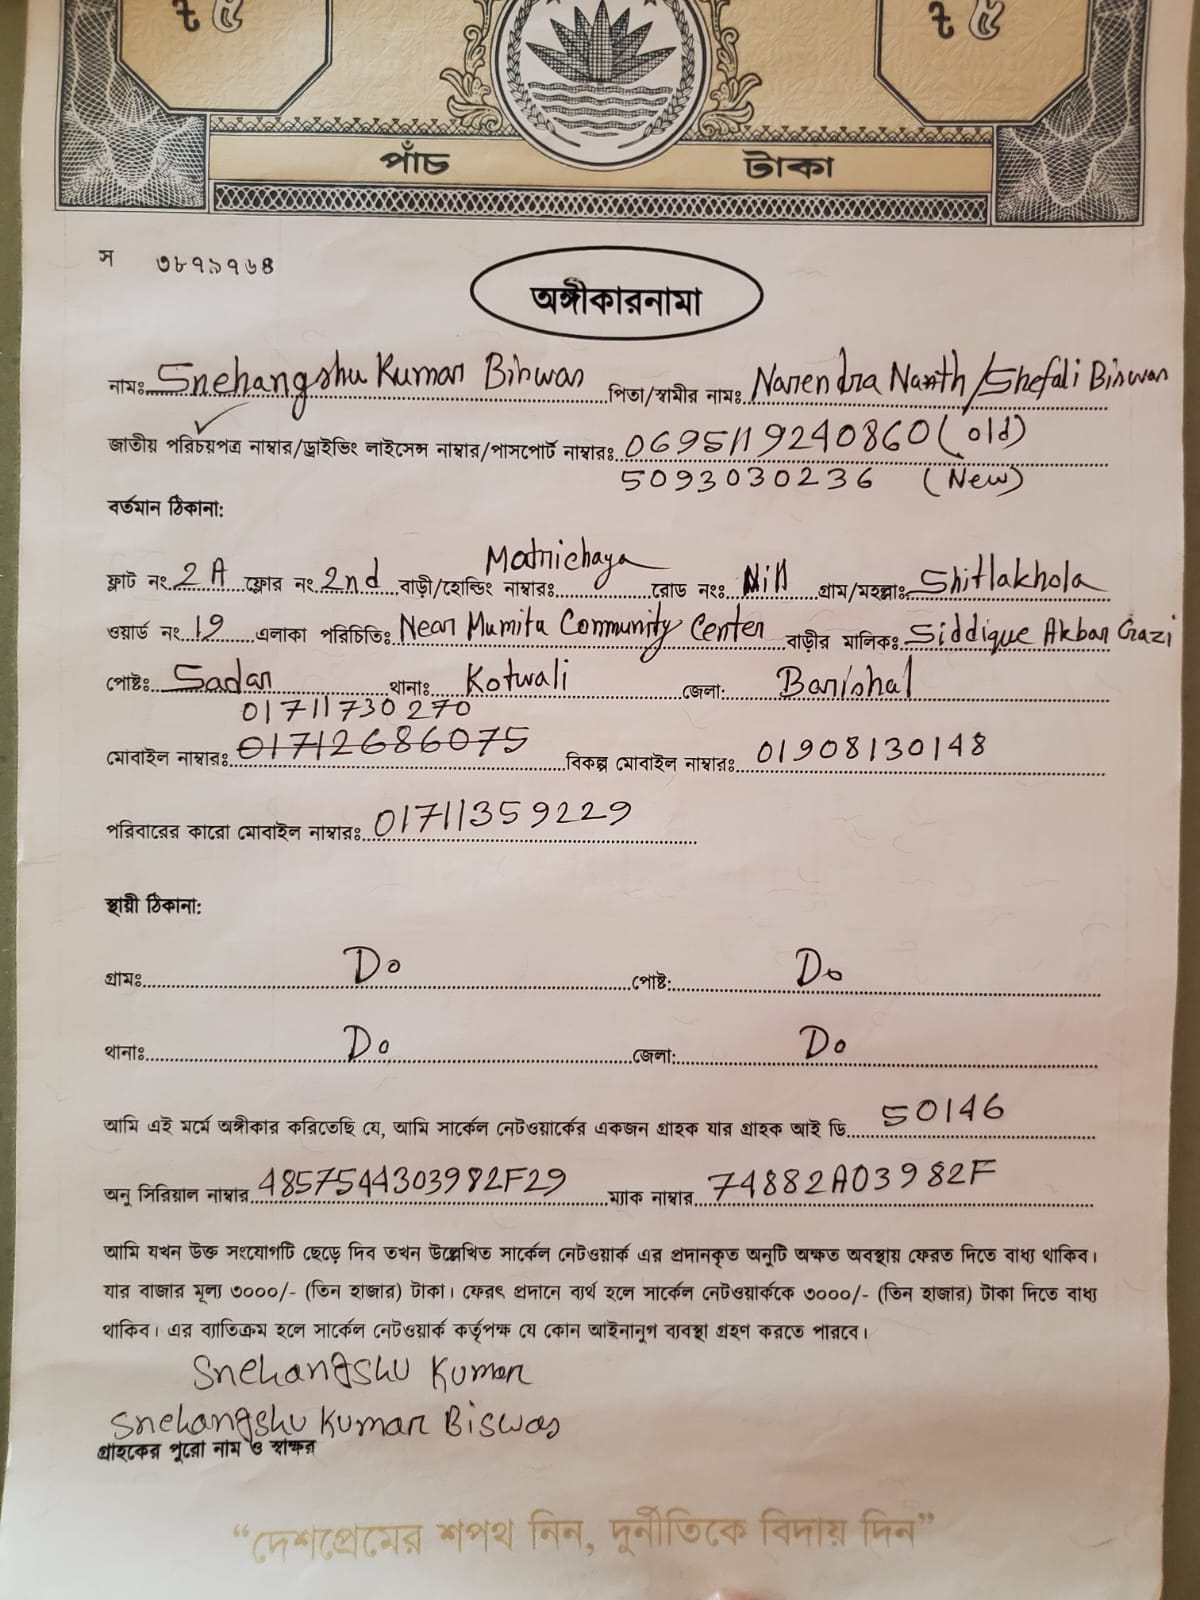 ৳ ৫ ৳ ৫
পাঁচ টাকা
স ৩৮৭৯৭৬৪
অঙ্গীকারনামা
নামঃ Snehangshu Kumar Biswas পিতা/স্বামীর নামঃ Narendra Nanth/Shefali Biswas
জাতীয় পরিচয়পত্র নাম্বার/ড্রাইভিং লাইসেন্স নাম্বার/পাসপোর্ট নাম্বারঃ 0695119240860 (old)
5093030236 (New)
বর্তমান ঠিকানা:
ফ্লাট নং 2A ফ্লোর নং 2nd বাড়ী/হোল্ডিং নাম্বারঃ Matrichaya রোড নংঃ Nill গ্রাম/মহল্লাঃ Shitlakhola
ওয়ার্ড নং 19 এলাকা পরিচিতিঃ Near Mumita Community Center বাড়ীর মালিকঃ Siddique Akbar Gazi
পোষ্টঃ Sadar থানাঃ Kotwali জেলা: Barishal
01711730270
মোবাইল নাম্বারঃ 01712686075 বিকল্প মোবাইল নাম্বারঃ 01908130148
পরিবারের কারো মোবাইল নাম্বারঃ 01711359229
স্থায়ী ঠিকানা:
গ্রামঃ Do পোষ্ট: Do
থানাঃ Do জেলা: Do
আমি এই মর্মে অঙ্গীকার করিতেছি যে, আমি সার্কেল নেটওয়ার্কের একজন গ্রাহক যার গ্রাহক আই ডি 50146
অনু সিরিয়াল নাম্বার 4857544303982F29 ম্যাক নাম্বার 74882A03982F
আমি যখন উক্ত সংযোগটি ছেড়ে দিব তখন উল্লেখিত সার্কেল নেটওয়ার্ক এর প্রদানকৃত অনুটি অক্ষত অবস্থায় ফেরত দিতে বাধ্য থাকিব।
যার বাজার মূল্য ৩০০০/- (তিন হাজার) টাকা। ফেরৎ প্রদানে ব্যর্থ হলে সার্কেল নেটওয়ার্ককে ৩০০০/- (তিন হাজার) টাকা দিতে বাধ্য
থাকিব। এর ব্যতিক্রম হলে সার্কেল নেটওয়ার্ক কর্তৃপক্ষ যে কোন আইনানুগ ব্যবস্থা গ্রহণ করতে পারবে।
Snehangshu Kumar
Snehangshu Kumar Biswas
গ্রাহকের পুরো নাম ও স্বাক্ষর
“দেশপ্রেমের শপথ নিন, দুর্নীতিকে বিদায় দিন”